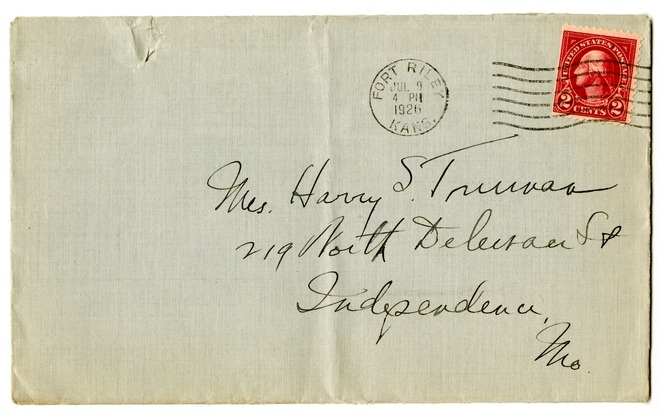 FORT RILEY
JUL 9
4 PM
1926
KANS.
UNITED STATES POSTAGE
2 CENTS 2
Mrs. Harry S. Truman
219 North Delaware St
Independence,
Mo.